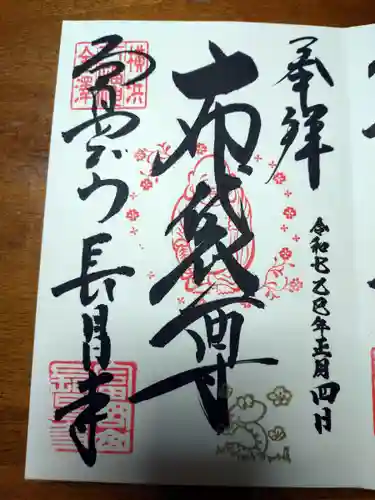 奉拝
令和七乙巳年正月四日
布袋尊
横浜
金澤
富岡山 長昌寺